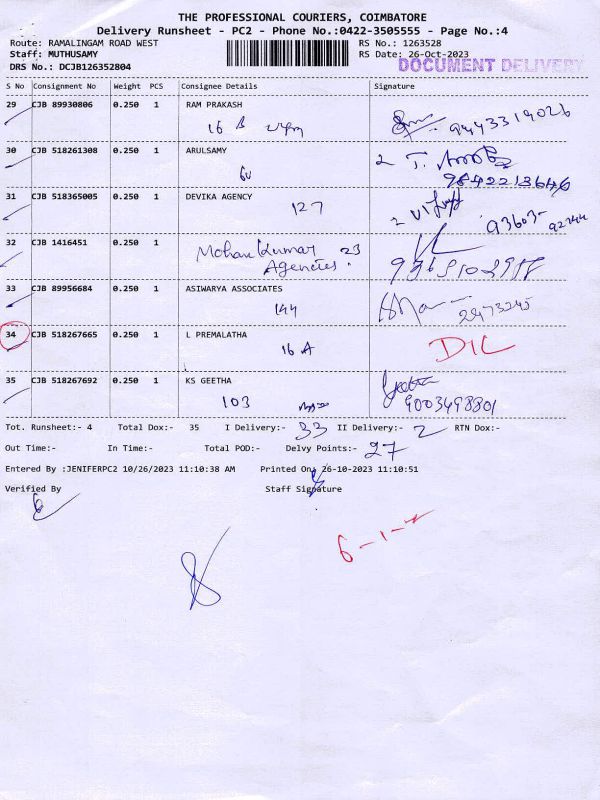 THE PROFESSIONAL COURIERS, COIMBATORE
Delivery Runsheet - PC2 - Phone No.:0422-3505555 - Page No.:4
Route: RAMALINGAM ROAD WEST RS No.: 1263528
Staff: MUTHUSAMY RS Date: 26-Oct-2023
DRS No.: DCJB126352804 DOCUMENT DELIVERY
S No Consignment No Weight PCS Consignee Details Signature
29 CJB 89930806 0.250 1 RAM PRAKASH
16 B 9443319026
30 CJB 518261308 0.250 1 ARULSAMY
60 2 T.
9842213646
31 CJB 518365005 0.250 1 DEVIKA AGENCY
127 2
32 CJB 1416451 0.250 1 Mohan Kumar 23
Agencies.
33 CJB 89956684 0.250 1 ASIWARYA ASSOCIATES
144 2473245
34 CJB 518267665 0.250 1 L PREMALATHA
16 A DIL
35 CJB 518267692 0.250 1 KS GEETHA
103 Geetha
9003498801
Tot. Runsheet:- 4 Total Dox:- 35 I Delivery:- 33 II Delivery:- 2 RTN Dox:-
Out Time:- In Time:- Total POD:- Delvy Points:- 27
Entered By :JENIFERPC2 10/26/2023 11:10:38 AM Printed On: 26-10-2023 11:10:51
Verified By Staff Signature
6-1-